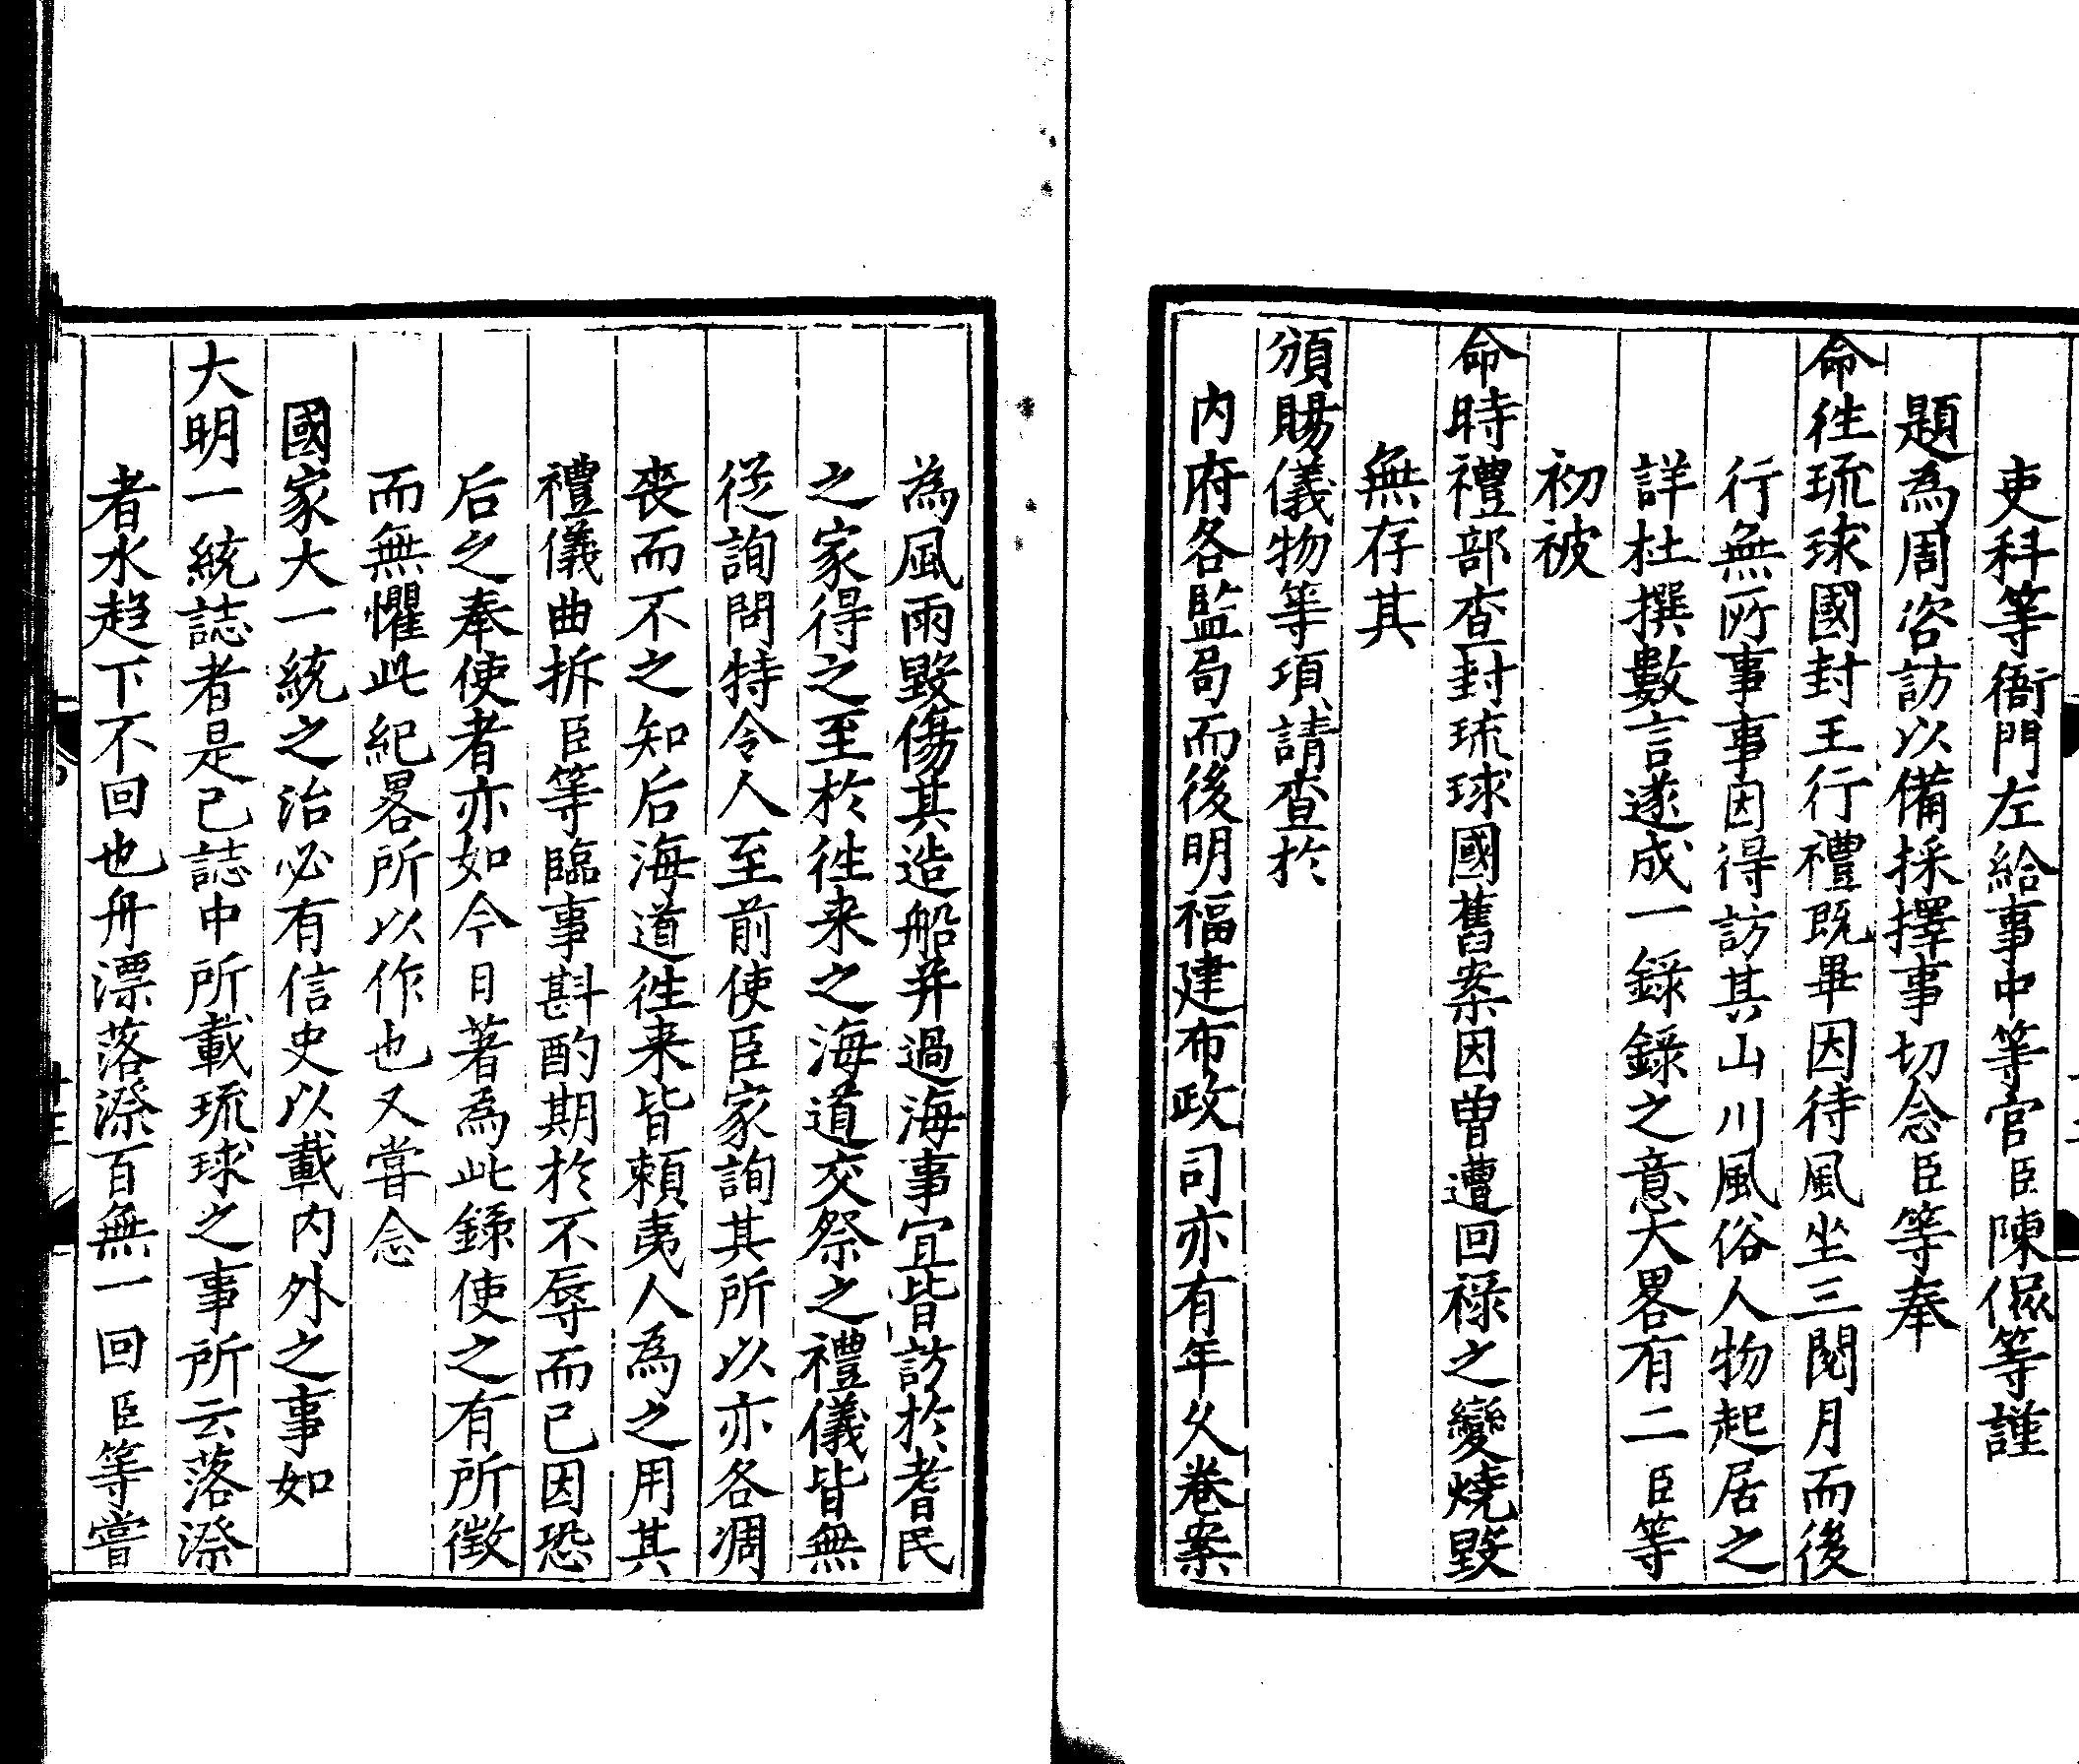 吏科等衙門左給事中等官臣陳侃等謹
題為周咨訪以備採擇事切念臣等奉
命徃琉球國封王行禮既畢因待風坐三閱月而後
行無所事事因得訪其山川風俗人物起居之
詳杜撰數言遂成一錄錄之意大畧有二臣等
初被
命時禮部查封琉球國舊案因曾遭回祿之變燒毀
無存其
頒賜儀物等項請查於
內府各監局而後明福建布政司亦有年久卷案
為風雨毀傷其造船并過海事宜皆訪於耆民
之家得之至於徃来之海道交祭之禮儀皆無
從詢問特令人至前使臣家詢其所以亦各凋
喪而不之知后海道徃来皆賴夷人為之用其
禮儀曲折臣等臨事斟酌期於不辱而已因恐
后之奉使者亦如今日著為此錄使之有所徵
而無懼此紀畧所以作也又嘗念
國家大一統之治必有信史以載內外之事如
大明一統誌者是已誌中所載琉球之事所云落漈
者水趋下不回也舟漂落漈百無一回臣等嘗